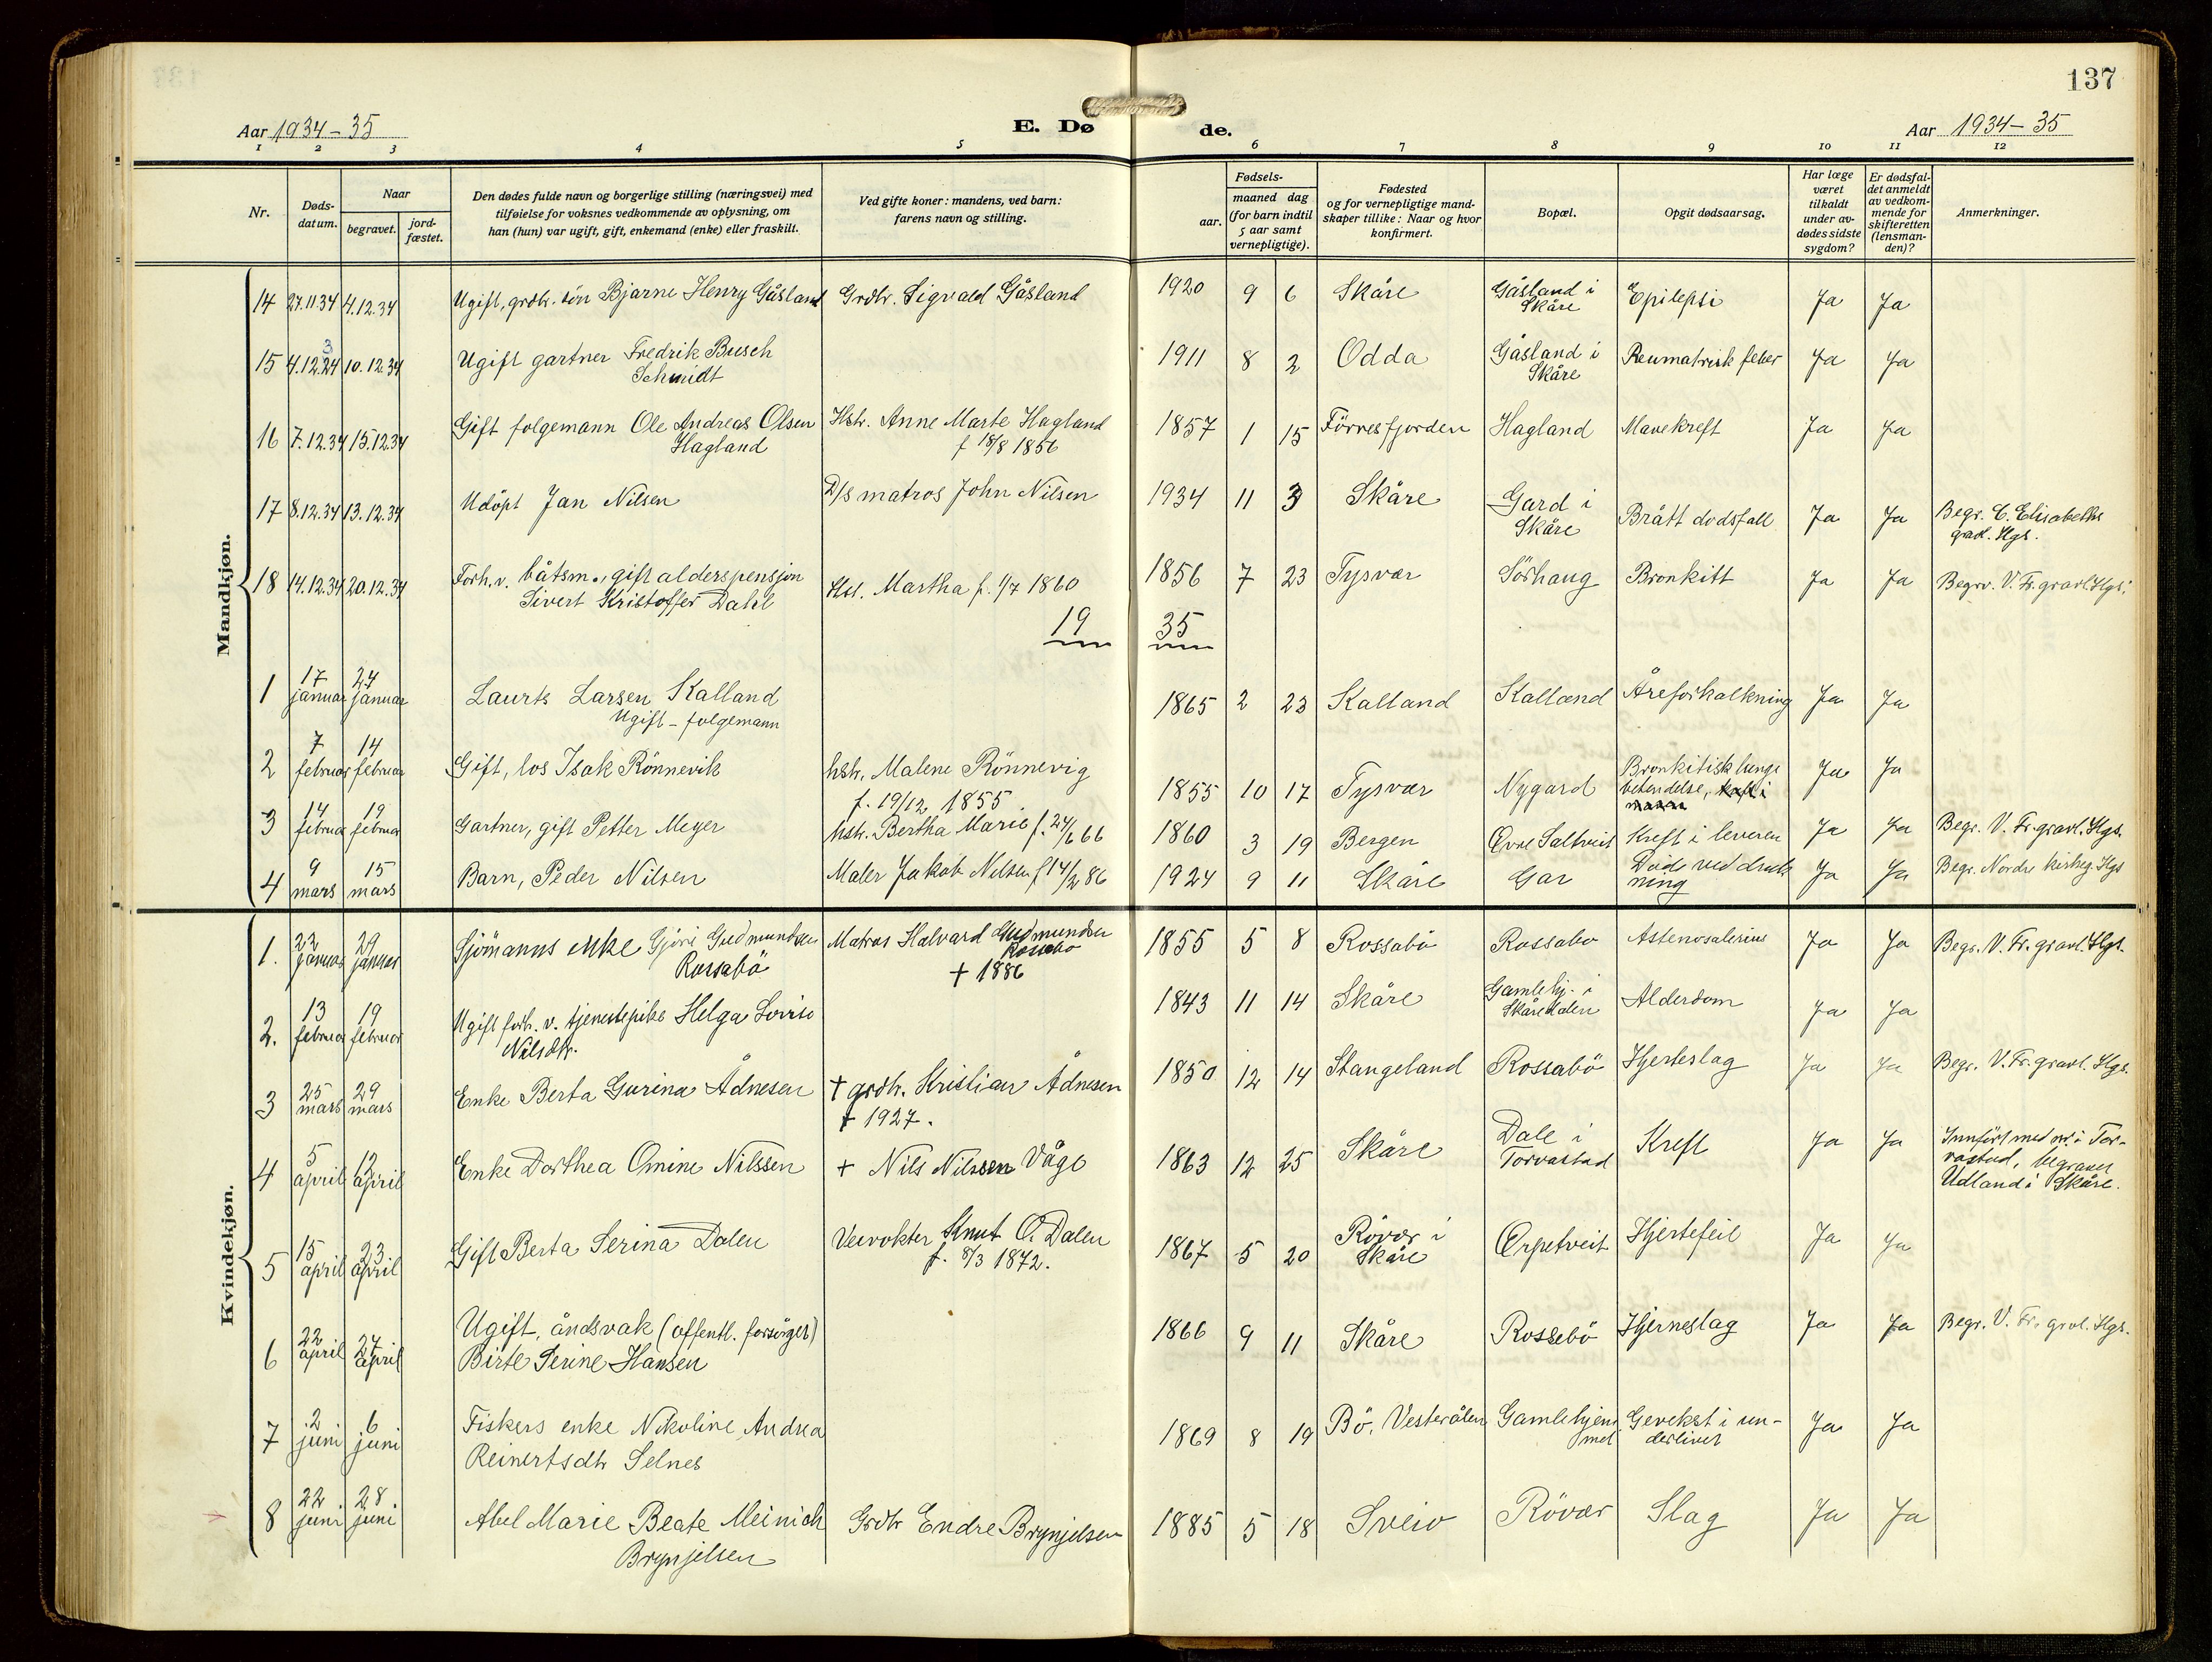 137
Aar 1934-35 E. Døde. Aar 1934-35
1 2 3 4 5 6 7 8 9 10 11 12
Nr.
Døds-datum.
Naar
begravet.
jord-fæstet.
Den dødes fulde navn og borgerlige stilling (næringsvei) med
tilføielse for voksnes vedkommende av oplysning, om
han (hun) var ugift, gift, enkemand (enke) eller fraskilt.
Ved gifte koner: mandens, ved barn:
farens navn og stilling.
Fødsels-
aar.
maaned dag
(for barn indtil
5 aar samt
vernepligtige).
Fødested
og for vernepligtige mand-
skaper tillike: Naar og hvor
konfirmert.
Bopæl.
Opgit dødsaarsag.
Har læge
været
tilkaldt
under av-
dødes sidste
sygdom?
Er dødsfal-
det anmeldt
av vedkom-
mende for
skifteretten
(lensman-
den)?
Anmerkninger.
Mandkjøn.
14 27.11.34 4.12.34 Ugift, grdbr. søn Bjarne Henry Gåsland Grdbr. Sigvald Gåsland 1920 9 6 Skåre Gåsland i Epilepsi Ja Ja
Skåre
3
15 4.12.24 10.12.34 Ugift gartner Fredrik Busch 1911 8 2 Odda Gåsland i Reumatrisk feber Ja Ja
Schmidt Skåre
16 7.12.34 15.12.34 Gift folgemann Ole Andreas Olsen Hstr. Anne Marte Hagland 1857 1 15 Förresfjorden Hagland Mavekreft Ja Ja
Hagland f 18/8 1856
17 8.12.34 13.12.34 Udöpt Jan Nilsen D/s matros John Nilsen 1934 11 3 Skåre Gard i Brått dodsfall Ja Ja Begr. C. Elisabeths
Skåre gravl. Hgs.
18 14.12.34 20.12.34 Forh. v. båtsm., gift alderspensjon Hst. Martha f. 1/7 1860 1856 7 23 Tysvær Sörhaug Bronkitt Ja Ja Begrv. V. Fr. gravl. Hgs.
Sivert Kristoffer Dahl
19 35
1 17 januar 24 januar Laurts Larsen Kalland 1865 2 23 Kalland Kalland Åreforkalkning Ja Ja
Ugift - folgemann
2 7 februar 14 februar Gift, los Isak Rönnevik hstr. Malene Rönnevig 1855 10 17 Tysvær Nygard Bronkitisk lunge Ja Ja
f. 19/12 1855 betendelse,
3 14 februar 19 februar Gartner, gift Petter Meyer hstr. Bertha Marie f. 24/6 66 1860 3 19 Bergen Øvre Saltveit Kreft i leveren Ja Ja Begr. V. Fr. gravl. Hgs.
4 9 mars 15 mars Barn, Peder Nilsen Maler Jakob Nilsen f 14/2 86 1924 9 11 Skåre Gar Död ved druk- Ja Ja Begr. Nordre kirkeg. Hgs
ning
Kvindekjøn.
1. 22 januar 29 januar Sjömanns enke Gjöri Gudmundsen Matros Halvard Gudmundsen 1855 5 8 Rossabö Rossabo Ja Ja Begr. V. Fr. gravl. Hgs.
Rossabö Rossebø
+ 1886
2. 13 februar 19 februar Ugift forh. v. tjenestepike Helga Lovise 1843 11 14 Skåre Gamlehj. i Alderdom Ja Ja
Nilsdtr. Skåredalen
3 25 mars 29 mars Enke Berta Gurina Ådnesen + grdbr. Kristian Ådnesen 1850 12 14 Stangeland Rossabö Hjerteslag Ja Ja Begr. V. Fr. gravl. Hgs.
+ 1927.
4 5 april 12 april Enke Dorthea Omine Nilssen + Nils Nilssen Våge 1863 12 25 Skåre Dale i Kreft Ja Ja Innfört med nr. i Tor-
Torvastad vastad, begraves
Udland i Skåre.
5 15 april 23 april Gift Berta Serina Dalen Veivokter Knut O. Dalen 1867 5 20 Rövær i Ørpetveit Hjertefeil Ja Ja
f. 8/3 1872. Skåre
6 22 april 27 april Ugift, åndsvak (offentl. forsörget) 1866 9 11 Skåre Rossebö Hjerneslag Ja Ja Begr. V. Fr. gravl. Hgs.
Birte Serine Hansen
7 2 juni 6 juni Fiskers enke Nikoline Andrea 1869 8 19 Bö, Vesterålen Gamlehjem- Gevekst i un- Ja Ja
Reinertsdtr Selnes met derlivet
8 22 juni 28 juni Abel Marie Beate Meinich Grdbr Endre Brynjelsen 1885 5 18 Sveio Rövær Slag Ja Ja
Brynjelsen